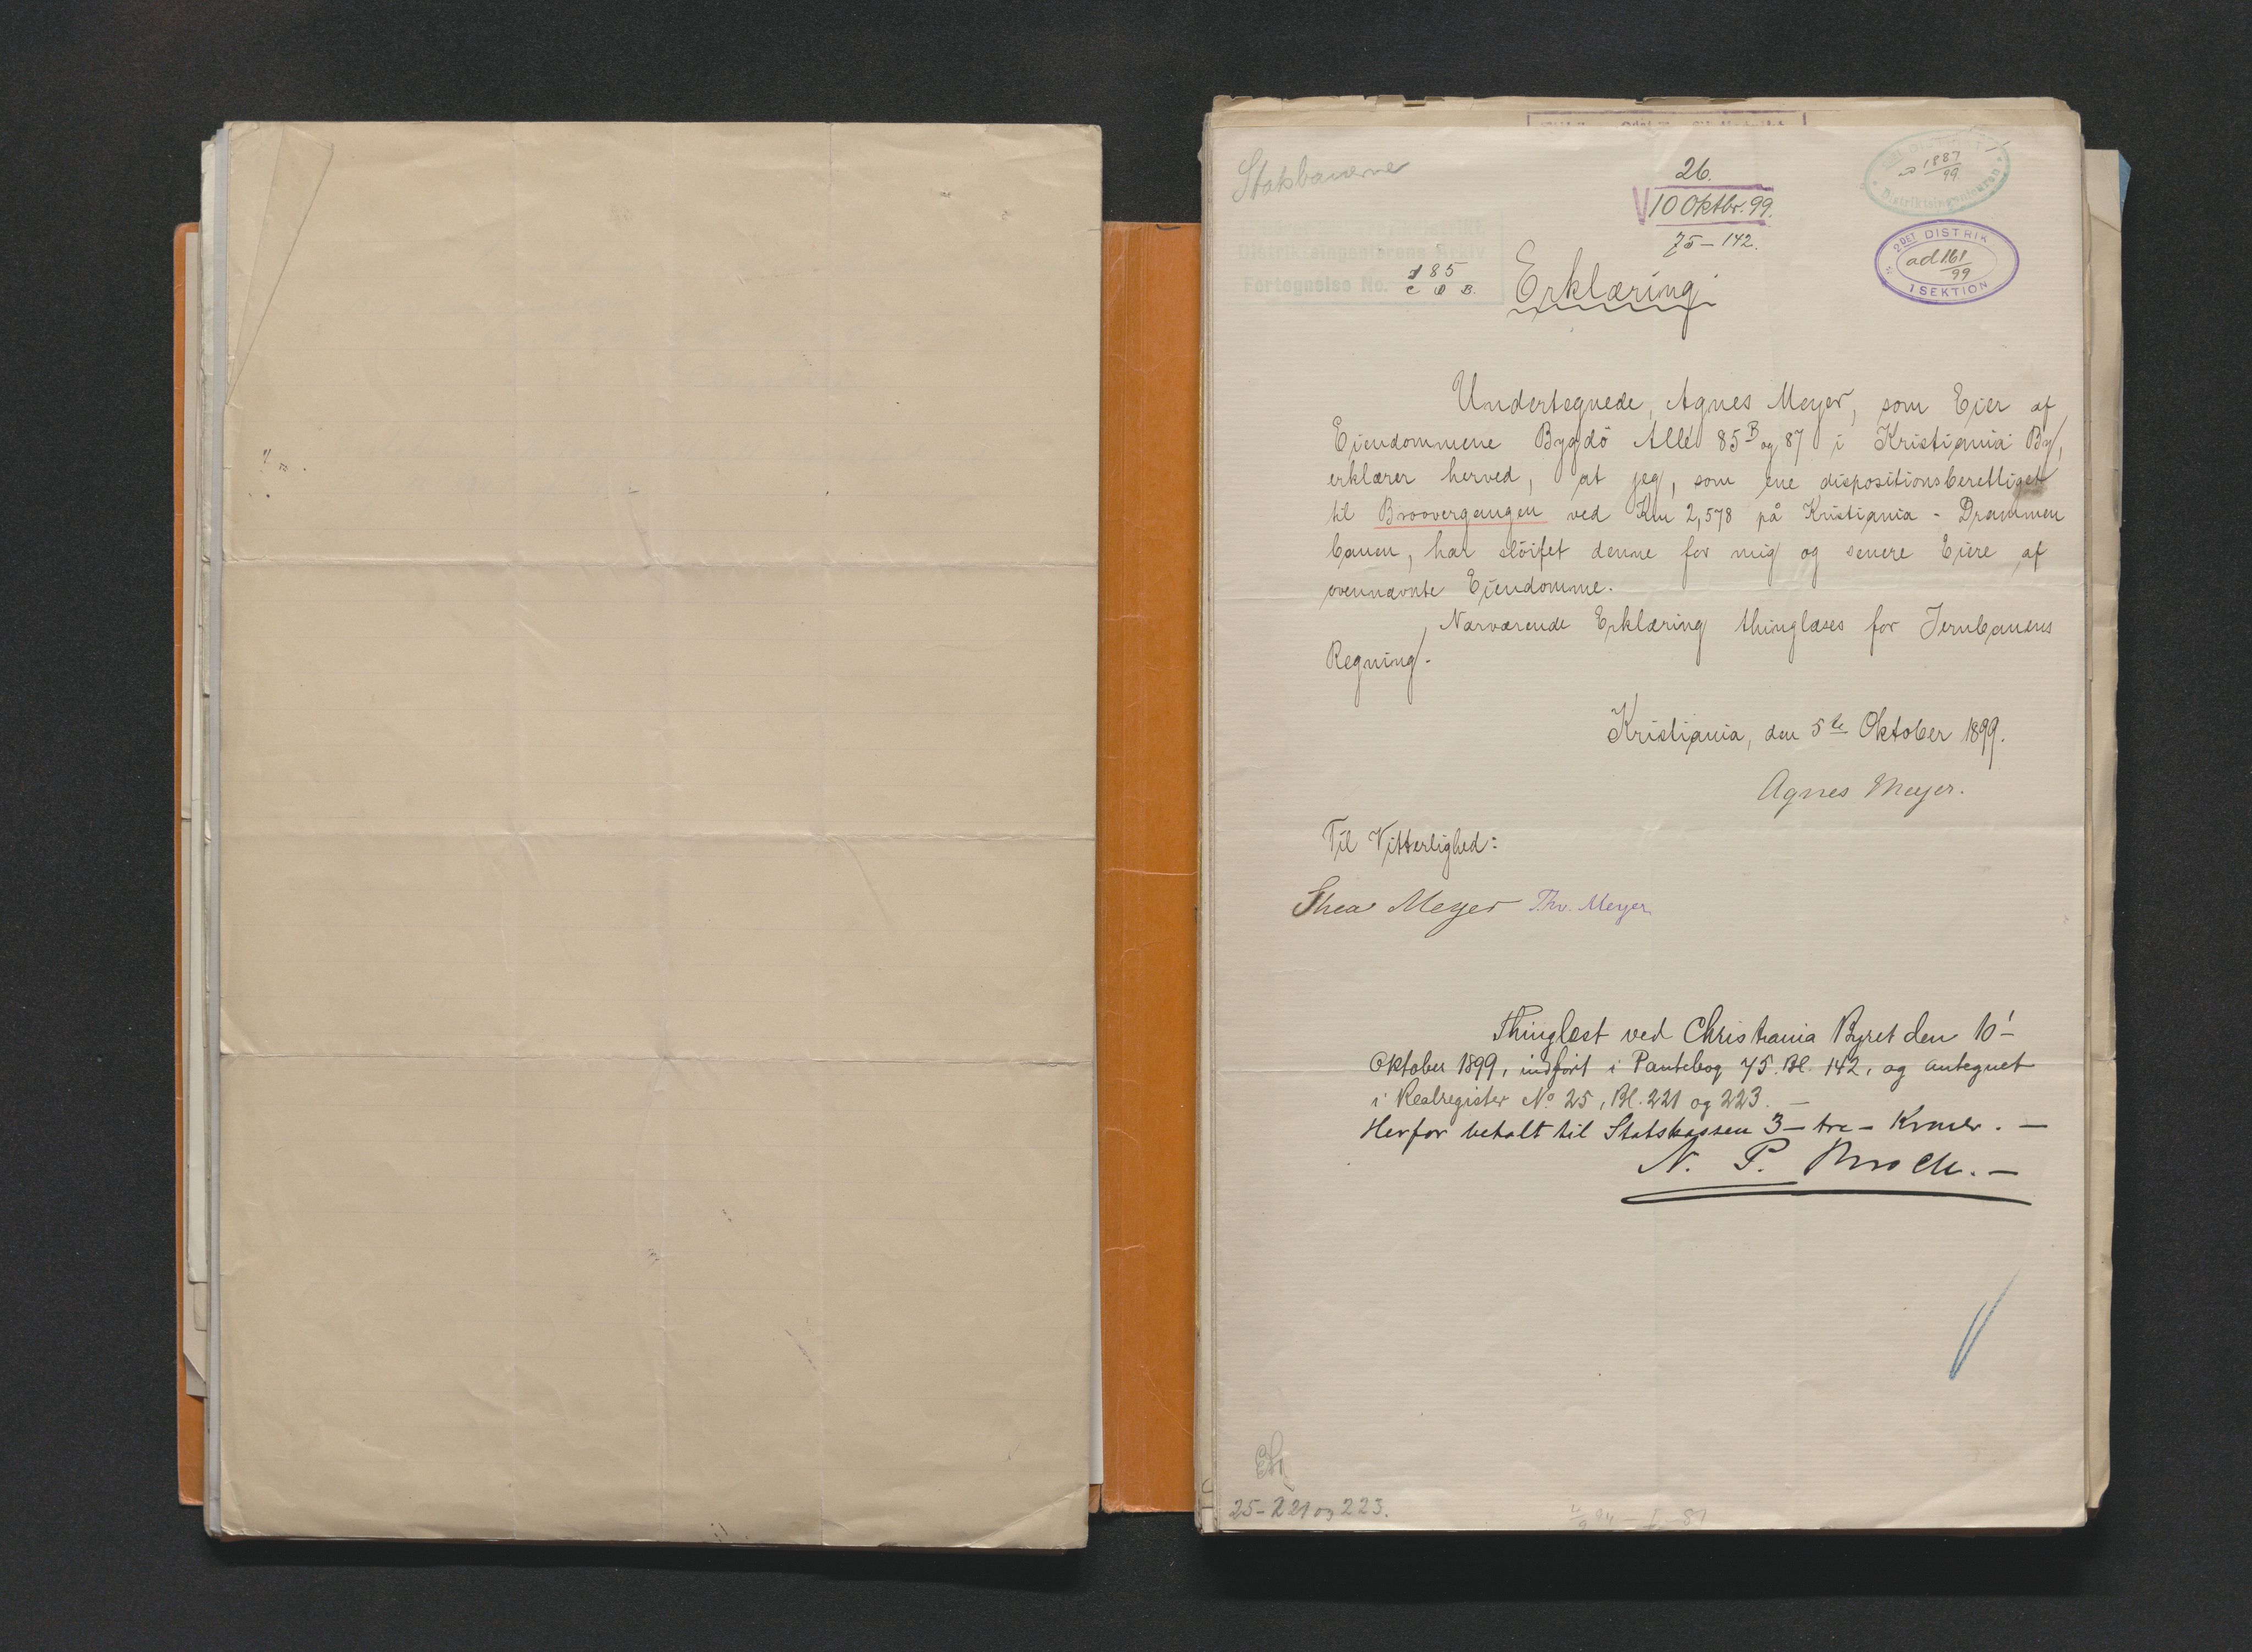 Statsbanerne
26.
10 Oktbr. 99.
75 – 142.
1887
99
Distriktsingeniøren
2DET DISTRIK
ad 161
99
1 SEKTION
Distriktsingeniørens Arkiv
Fortegnelse No. 185
C D B.
Erklæring
Undertegnede, Agnes Meyer, som Ejer af
Ejendommene Bygdö Allé 85 B og 87 i Kristiania By,
erklærer herved, at jeg, som ene dispositionsberettiget
til Broovergangen ved Km 2,578 på Kristiania - Drammen
banen, har slöifet denne for mig og senere Eiere af
ovennævnte Ejendomme.
Nærværende Erklæring thinglæses for Jernbanens
Regning.
Kristiania, den 5te Oktober 1899.
Agnes Meyer.
Til Vitterlighed:
Thea Meyer Thv. Meyer
Thinglæst ved Christiania Byret den 10'
Oktober 1899, indført i Pantebog 75. Bl. 142, og antegnet
i Realregister No. 25, Bl. 221 og 223. –
Herfor betalt til Statskassen 3 – tre – Kroner. –
N. P. Broch. –
25 – 221 og 223.